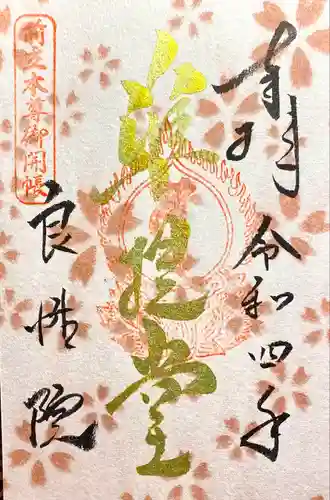 奉拝
令和四年
准提堂
前立本尊御開帳
良性院